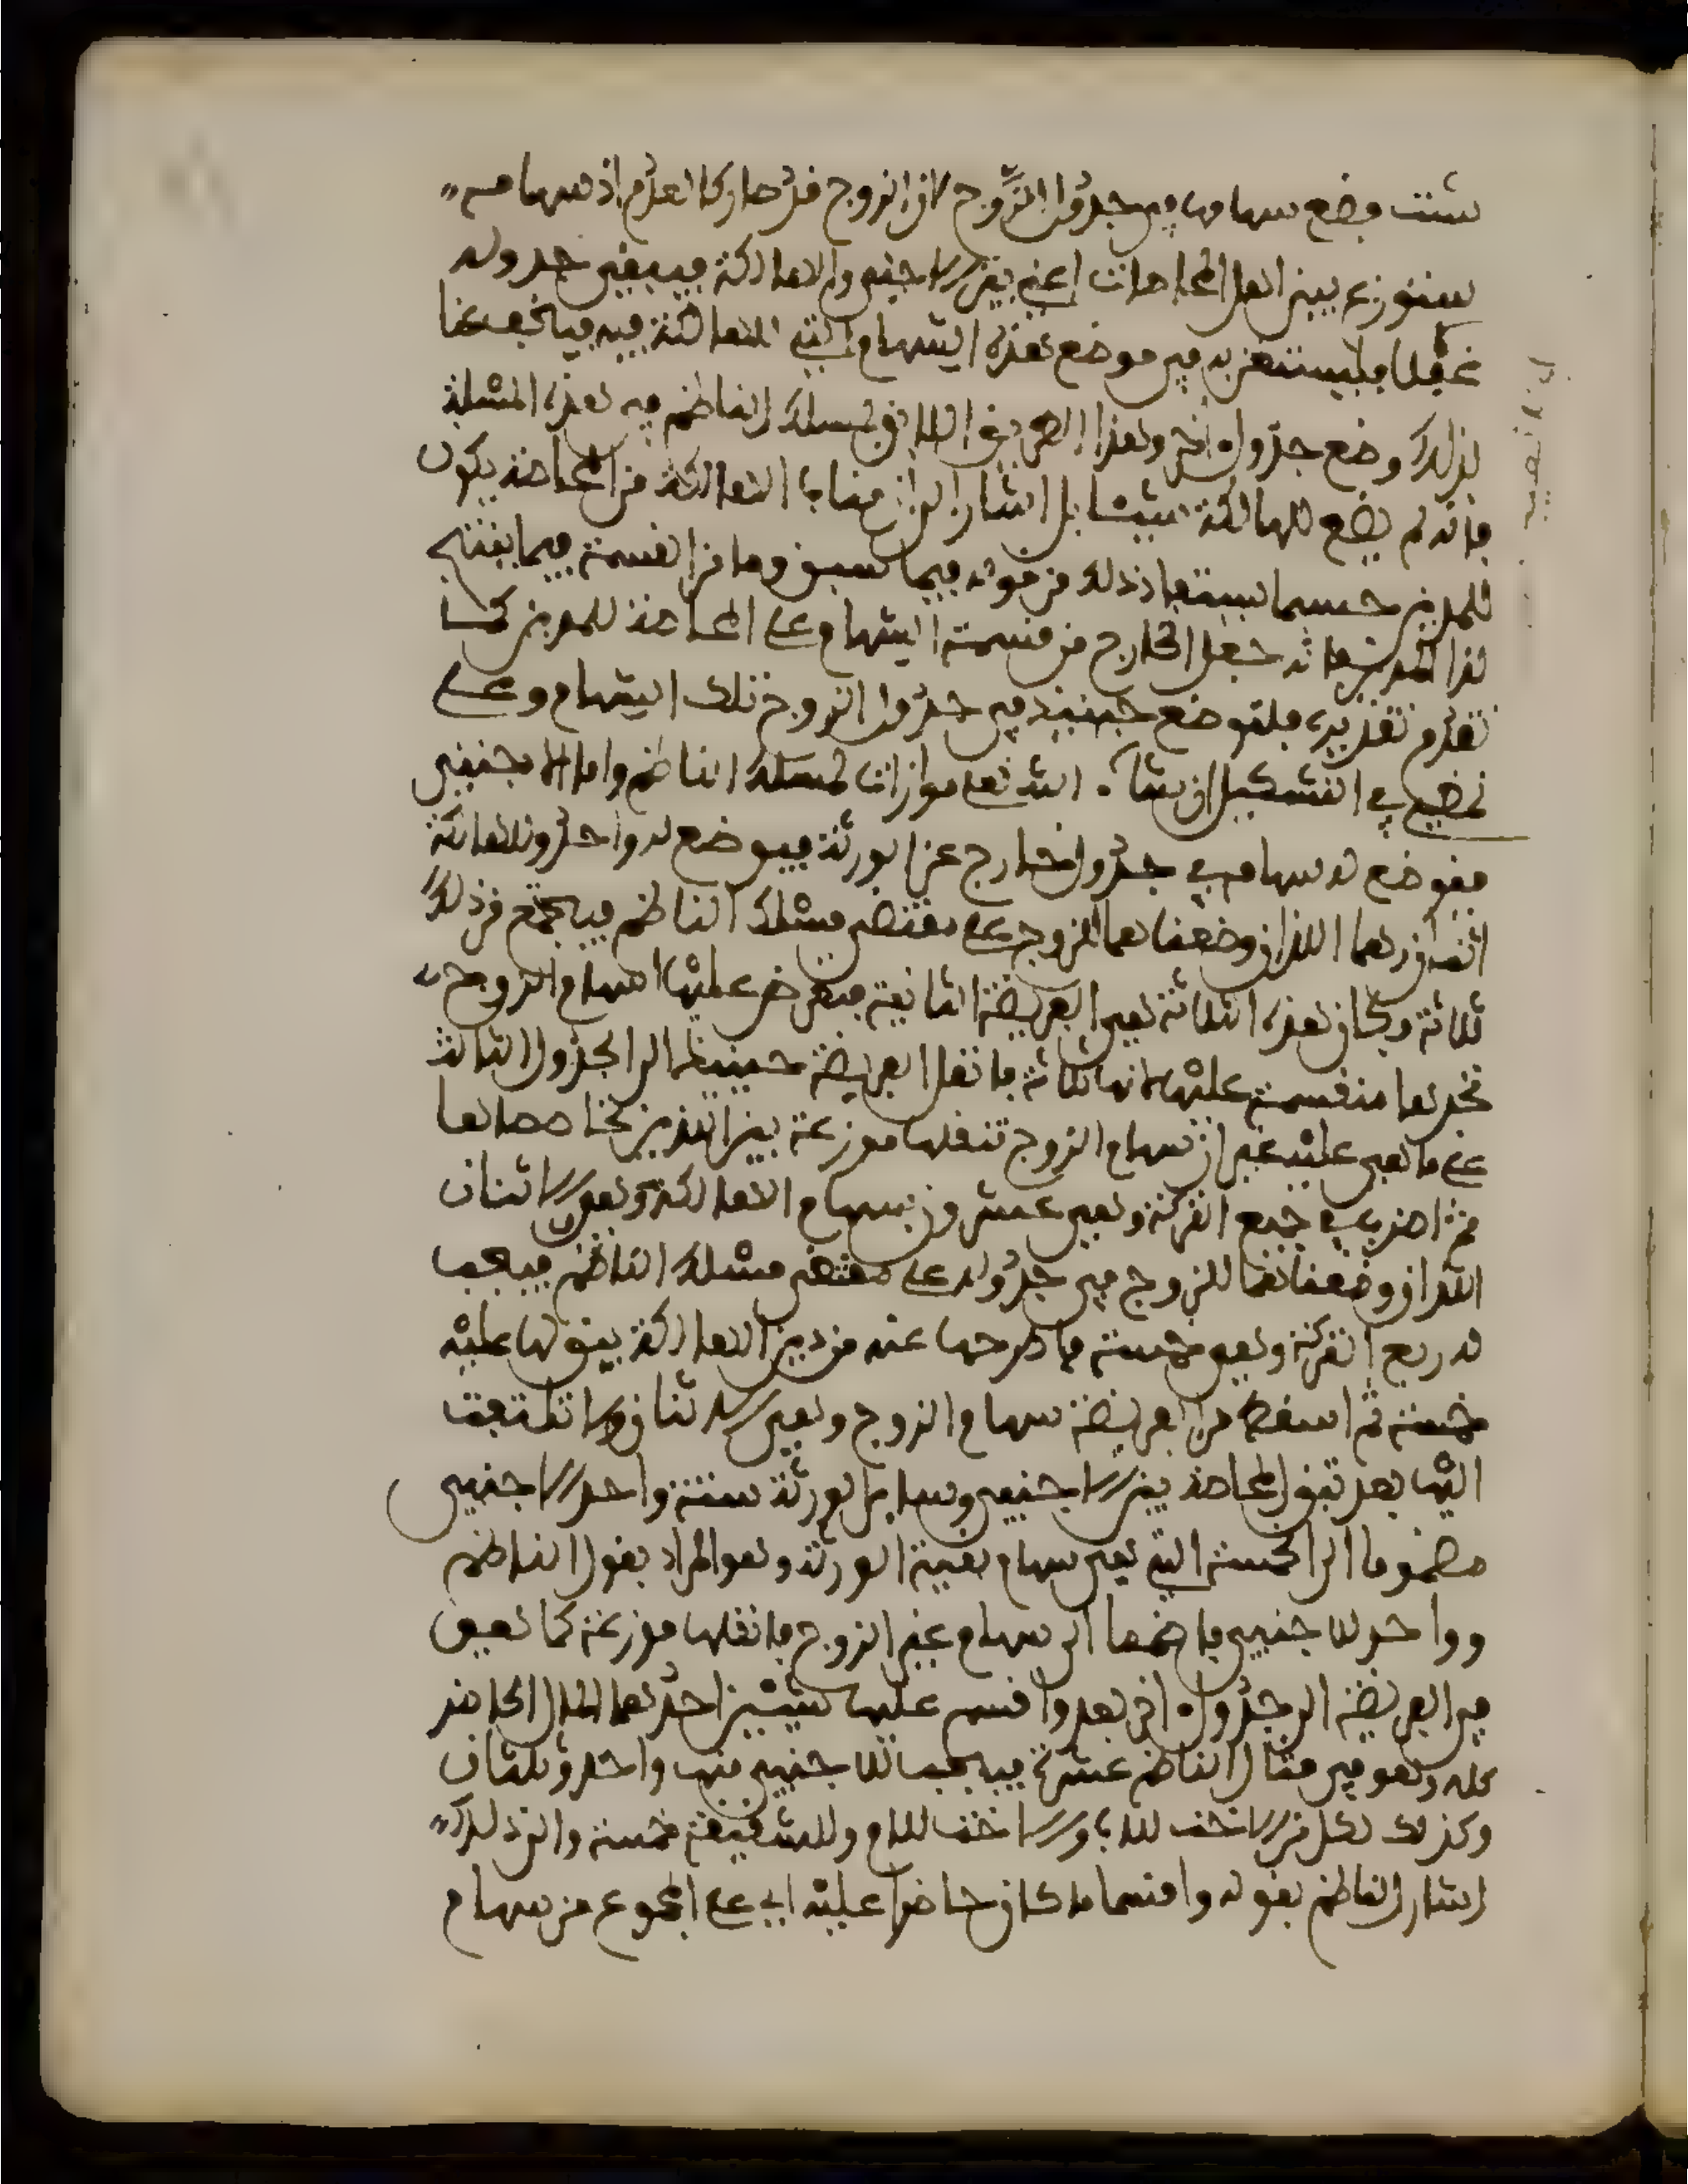 شئت فضع سهامها في جدول الزوج لان الزوج قد صار كالعدم اذ سهامه
ستوزع بين اهل المحاصات اعني بين الاجنبي والهالكة فيبقى جدوله
غفلا فليستغن به في موضع هذه السهام التي للهالكة فيه فيا
لذلك وضع جدول اخر وهذا الطريق اللائق بمسلك الناظم في هذه المسئلة
فانه لم يضع للهالكة شيئا بل اشار الى ان مناب الهالكة من المحاصة يكون
للمدين حسبما يستفاد ذلك من قوله فيما سبق وما من القسمة فيما ينتج
لذا المدين فانه جعل الخارج من قسمة السهام على المحاصة للمدين كما
تقدم تقديره فلتوضع حينئذ في جدول الزوج تلك السهام وعلى
نضع في التشكيل ان شاء الله تعلى موازات لمسلك الناظم واما الاجنبي
فتوضع له سهامه في جدول خارج عن الورثة فيوضع له واحد وللهالكة
اثنان وهما اللذان وضعناهما للزوج على مقتضى مسلك الناظم فيجتمع من ذلك
ثلاثة وكان هذه الثلاثة هي الفريضة الثانية فتعرض عليها سهام الزوج
تجدها منقسمة عليها لانها ثلاثة فانقل الفريضة حينئذ الى الجدول الثالث
على ما هي عليه غير ان سهام الزوج تنقلها موزعة بين الذين تحاصصاها
ثم اضرب في جميع التركة وهي عشرون سهام الهالكة وهو الاثنان
اللذان وضعناهما للزوج في جدوله على مقتضى مسلك الناظم فيجب
له ربع التركة وهو خمسة فاطرحها عنه من دين الهالكة يبقى لها عليه
خمسة ثم اسقط من الفريضة سهام الزوج وهي الاثنان ولا تلتفت
اليها بعد تبق المحاصة بين الاجنبي وسائر الورثة ستة واحد الاجنبي
مضموما الى الخمسة التي هي سهام بقية الورثة وهو المراد بقول الناظم
وواحد للاجنبي فاضمما الى سهام غير الزوج فانقلها موزعة كما هي
في الفريضة الى جدول اخر بعد واقسم عليها شيئين احدهما المال الحاضر
كله وهو في مثال الناظم عشرة فيجب للاجنبي منها واحد وثلثان
وكذلك لكل من الاخت للاب والاخت للام وللشقيقة خمسة والى ذلك
اشار الناظم بقوله واقسما ما كان حاضرا عليه اي على المجموع من سهام